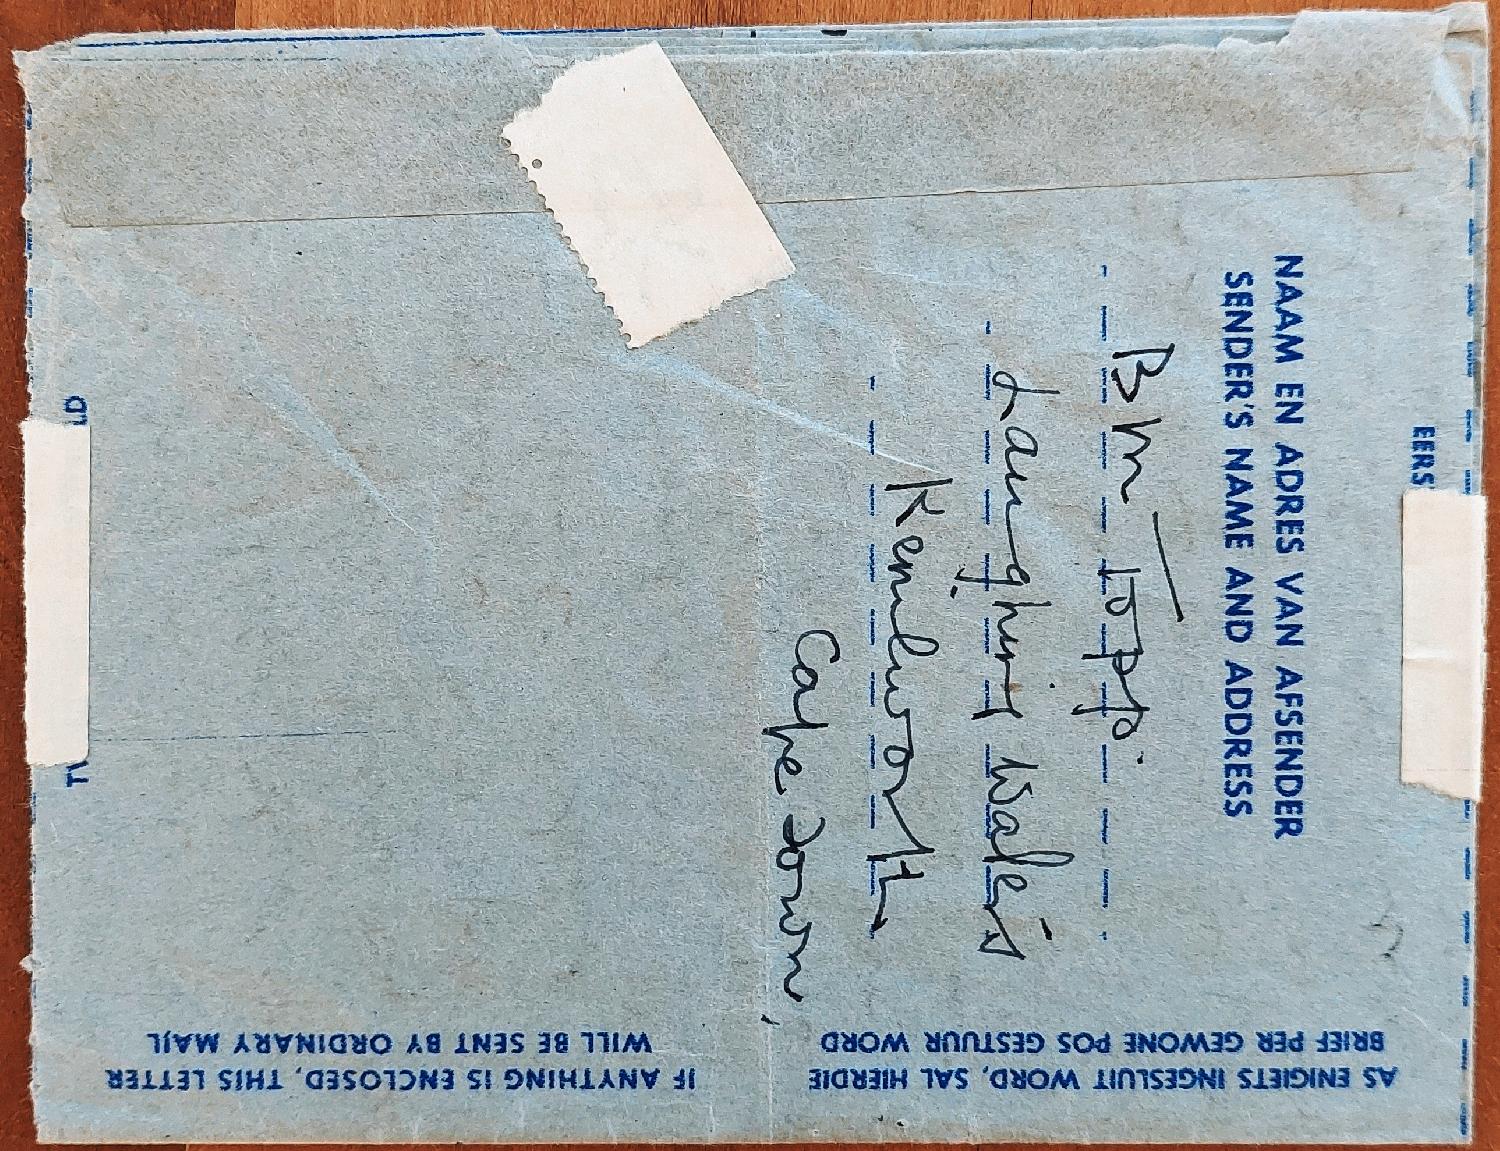 NAAM EN ADRES VAN AFSENDER
SENDER'S NAME AND ADDRESS
BM Topp.
Kenilworth
Cape Town,
AS ENIGIETS INGESLUIT WORD, SAL HIERDIE
BRIEF PER GEWONE POS GESTUUR WORD
IF ANYTHING IS ENCLOSED, THIS LETTER
WILL BE SENT BY ORDINARY MAIL
EERS